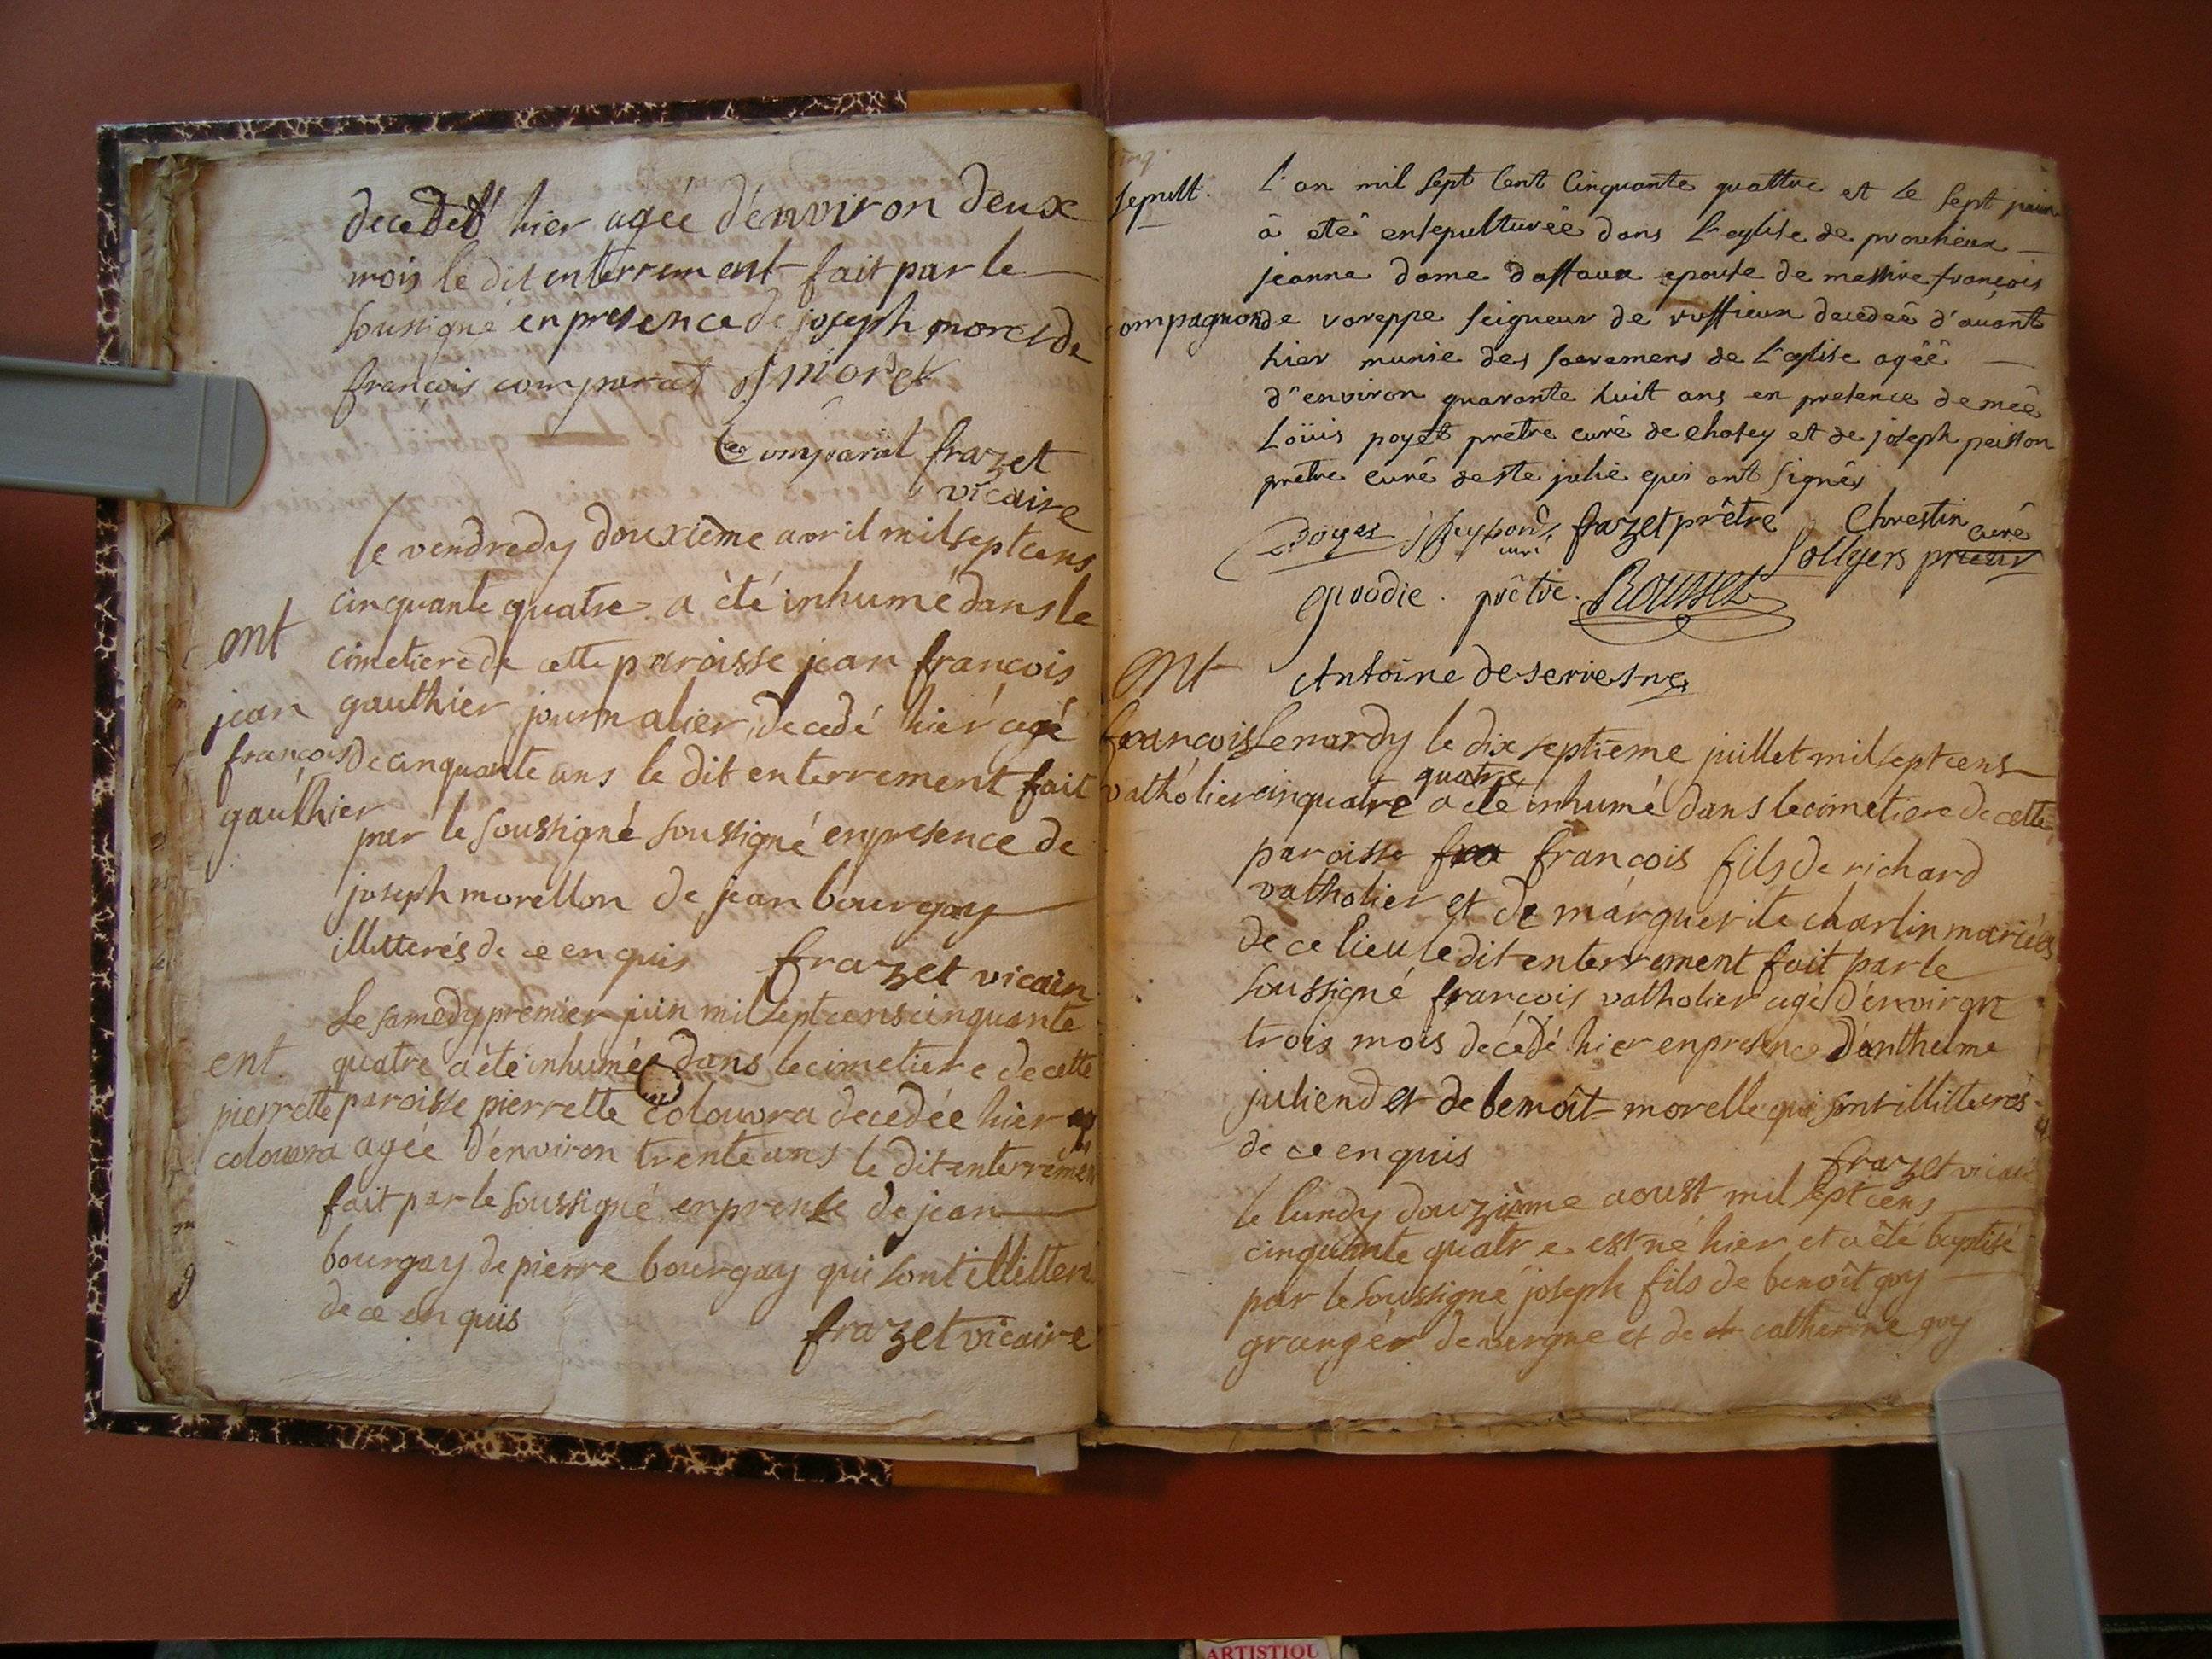 decedeé hier agée d'énviron deux
mois le dit enterrement fait par le
soussigné en presence de joseph morel de
françois comparat j morel
Comparat frazet
vicaire
le vendredy douxième avril mil sept cens
cinquante quatre a èté inhumé dans le
ent
cimetiere de cette paroisse jean françois
jean
gauthier journalier decedé hier agé
françois
de cinquante ans le dit enterrement fait
gauthier
par le soussigné soussigné en presence de
joseph morellon de jean bourgay
illitterés de ce enquis frazet vicair
Le samedy premier juin mil sept cens cinquante
ent.
quatre a èté inhumée dans le cimetiere de cette
pierrette
paroisse pierrette colouvra decedée hier
colouvra
agée d'énviron trente ans le dit enterrement
fait par le soussigné en prensce de jean
bourgay de pierre bourgay qui sont illitteré
de ce enquis
frazet vicaire
sepult.
L'an mil sept Cent Cinquante quattre et le sept juin
à eté ensepulturéé dans l'eglise de prouhieux
jeanne dame dassaux epouse de messire françois
compagnon
de vareppe seigneur de ruffieux decedeé d'avant
hier munie des sacremens de l'eglise agéé
d'environ quarante huit ans en presence de mee
Loüis poyet pretre curé de chosey et de joseph peisson
pretre curé de ste julie qui ont signés
frazet prêtre Chrestin curé
curé
Sollyers prieur
prêtre. Rousset
Antoine deseriesne
ent
françois
Lenardy le dix septième juillet mil sept cens
vatholier
cinquatre quatre a èté inhumé dans le cimetiere de cette
paroisse fra françois fils de richard
vatholier et de marguerite charlin mariés
de ce lieu le dit enterrement fait par le
soussigné françois vatholier agé d'énviron
trois mois décédé hier en presence d'anthelme
juliend et de benoît morelle qui sont illitterés
de ce enquis
frazet vicair
le lundy douzième aoust mil sept cens
cinquante quatre est né hier et a èté baptisé
par le soussigné joseph fils de benoît guy
granger de vergne et de catherine guy
ARTISTIQU